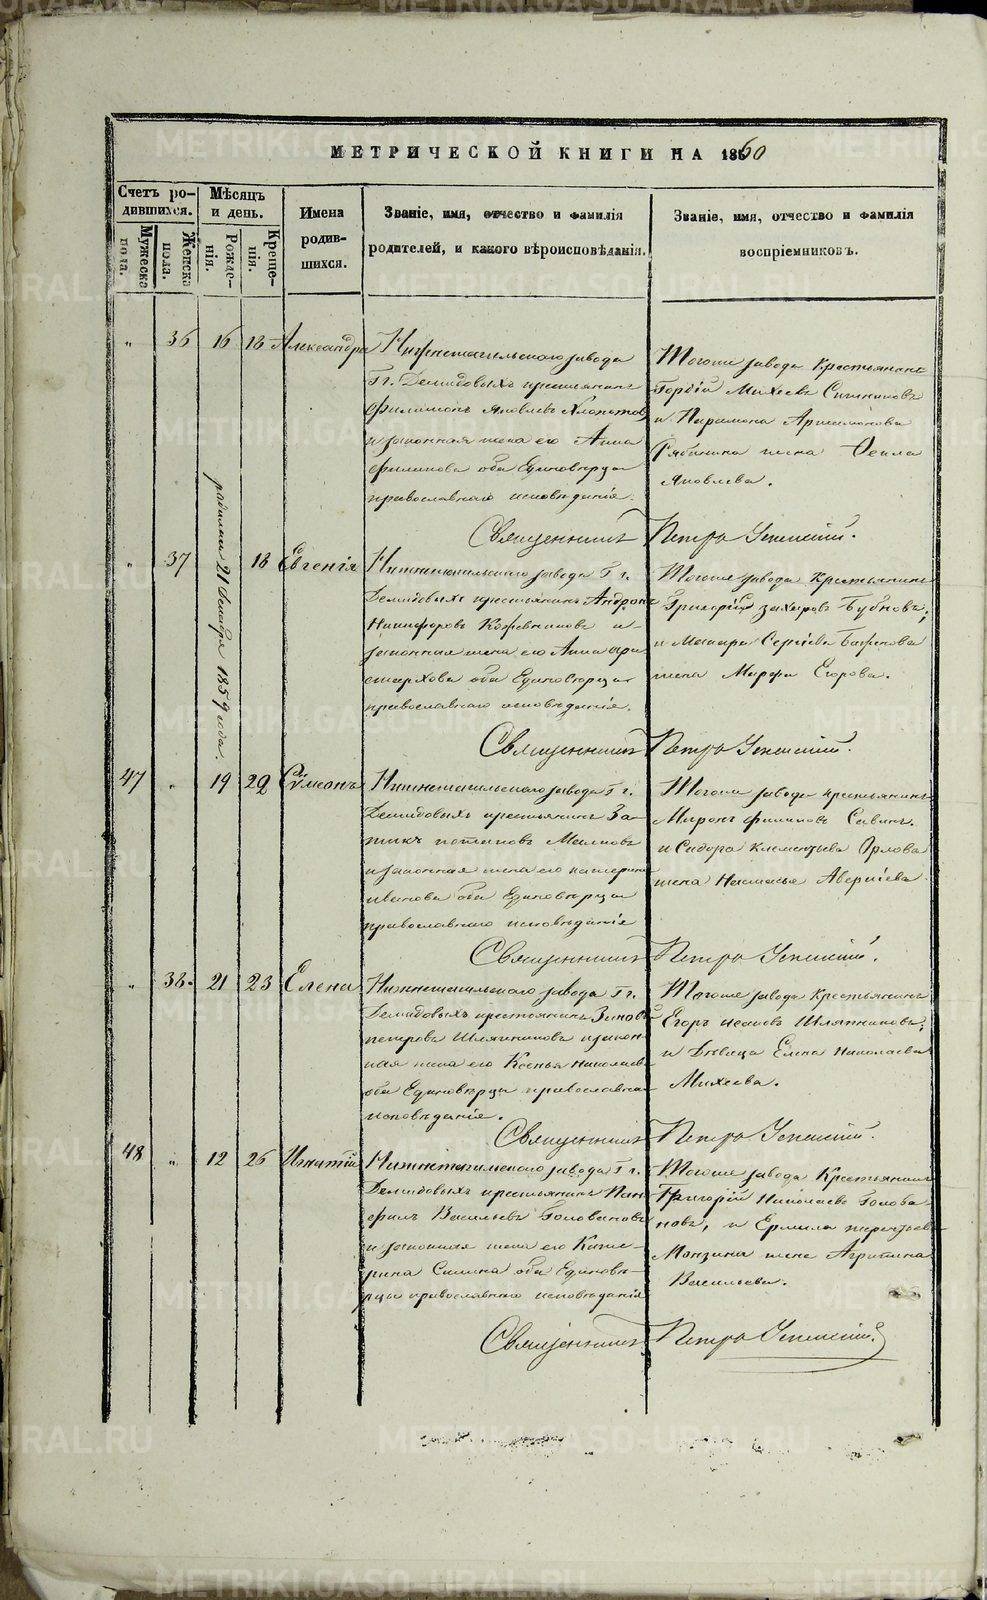 МЕТРИЧЕСКОЙ КНИГИ НА 1860
Счетъ ро-
дившихся.
Мужеска
пола.
Женска
пола.
Мѣсяцъ
и день.
Рожде-
нія.
Креще-
нія.
Имена
родив-
шихся.
Званіе, имя, отчество и фамилія
родителей, и какого вѣроисповѣданія.
Званіе, имя, отчество и фамилія
воспріемниковъ.
" 36 16 18 Александра
Нижнетагильскаго завода
Гг. Демидовыхъ крестьянинъ
Филимонъ Яковлевъ
и законная жена его Анна
Филипова оба Единовѣрцы
православнаго исповѣданія.
Тогоже завода Крестьянинъ
Гордій Михеевъ
и Парамона
Рябинина жена Фекла
Яковлева.
Священникъ Петръ Успенскій.
" 37 родилась 21 Декабря 1859 года. 18 Евгенія
Нижнетагильскаго завода Гг.
Демидовыхъ крестьянинъ Андронъ
Никифоровъ Кожевниковъ и
законная жена его Анна Ари
стархова оба Единовѣрцы
православнаго исповѣданія.
Тогоже завода Крестьянинъ
Григорій Захаровъ Бубновъ,
и Макара Сергіева Баженова
жена Марфа Егорова.
Священникъ Петръ Успенскій.
47 " 19 22 Сѵмеонъ
Нижнетагильскаго завода Гг.
Демидовыхъ крестьянинъ
Потаповъ
и законная жена его Катерина
Иванова оба Единовѣрцы
православнаго исповѣданія
Тогоже завода крестьянинъ
Миронъ Филиповъ Савинъ.
и Сидора Клементьева Орлова
жена Настасья Аверкіева
Священникъ Петръ Успенскій.
" 38. 21 23 Елена
Нижнетагильскаго завода Гг.
Демидовыхъ крестьянинъ
Петровъ Шляпниковъ и закон
ная жена его Ксенья Николаев
оба Единовѣрцы православна
исповѣданія.
Тогоже завода Крестьянинъ
Егоръ Исаковъ Шляпниковъ,
и Дѣвица Елена Николаева
Михеева.
Священникъ Петръ Успенскій.
48 " 12 26 Игнатій
Нижнетагильскаго завода Гг.
Демидовыхъ крестьянинъ Пан
филъ Васильевъ Головановъ
и законная жена его Кате-
рина Савина оба Единовѣ-
рцы православнаго исповѣданія
Тогоже завода Крестьянинъ
Григорій Николаевъ Голова-
новъ, и Ермила Терентьев
жена Агрипина
Васильева.
Священникъ Петръ Успенскій.
METRIKI.GASO-URAL.RU